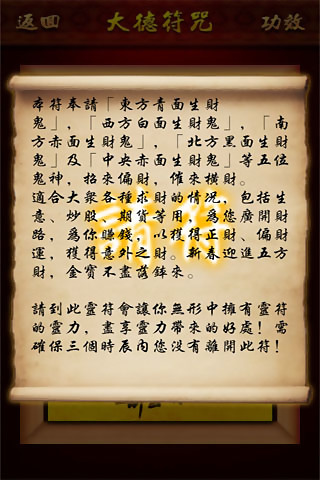 返回
大德符咒
功效
本符奉請「東方青面生財
鬼」，「西方白面生財鬼」，「南
方赤面生財鬼」，「北方黑面生財
鬼」及「中央赤面生財鬼」等五位
鬼神，招來偏財，催來橫財。
適合大眾各種求財的情況，包括生
意、炒股、期貨等用，為您廣開財
路，為你賺錢，以獲得正財、偏財
運，獲得意外之財。新春迎進五方
財，金寶不盡落鋒來。
請到此靈符會讓你無形中擁有靈符
的靈力，盡享靈力帶來的好處！需
確保三個時辰內您沒有離開此符！
請符